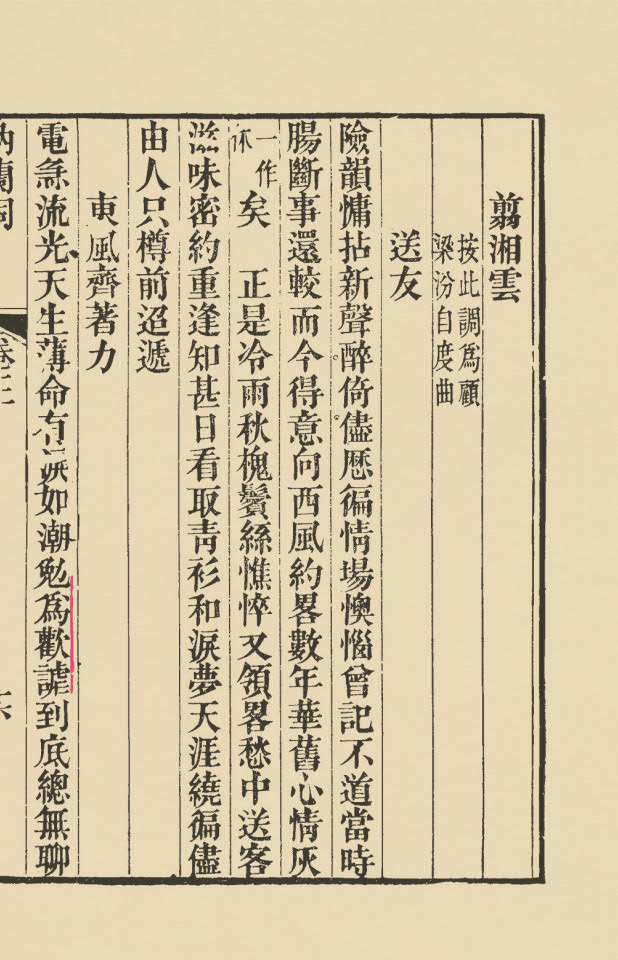 翦湘雲
按此調爲顧
梁汾自度曲
送友
險韻慵拈新聲醉倚儘歷徧情場懊惱曾記不道當時
腸斷事還較而今得意向西風約畧數年華舊心情灰
一作
休
矣 正是冷雨秋槐鬢絲憔悴又領畧愁中送客
滋味密約重逢知甚日看取靑衫和淚夢天涯繞徧儘
由人只樽前迢遞
東風齊著力
電急流光天生薄命有淚如潮勉爲歡謔到底總無聊
納蘭詞